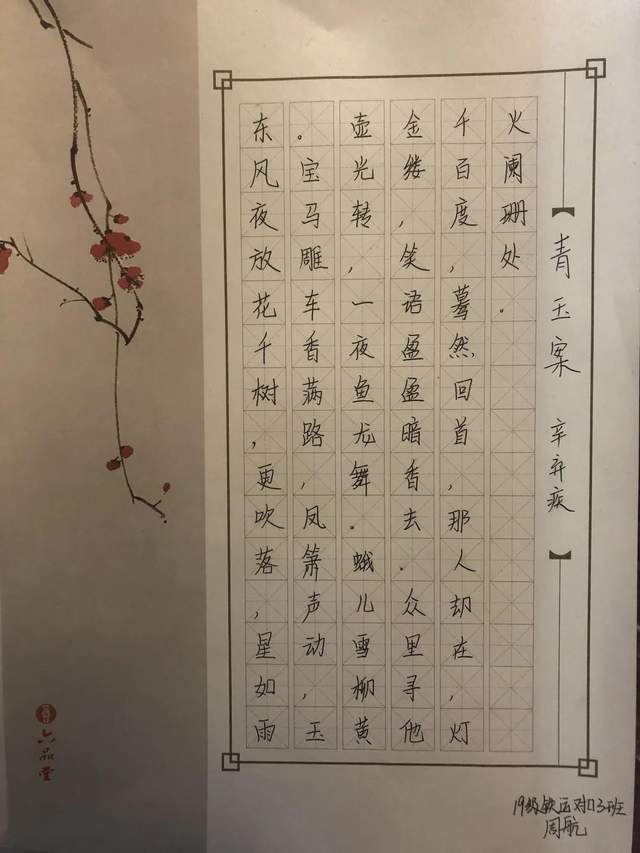 青玉案 辛弃疾
东风夜放花千树，更吹落，星如雨
。宝马雕车香满路，凤箫声动，玉
壶光转，一夜鱼龙舞。蛾儿雪柳黄
金缕，笑语盈盈暗香去。众里寻他
千百度，蓦然回首，那人却在，灯
火阑珊处。
六品堂
19级铁运对口3班
周航